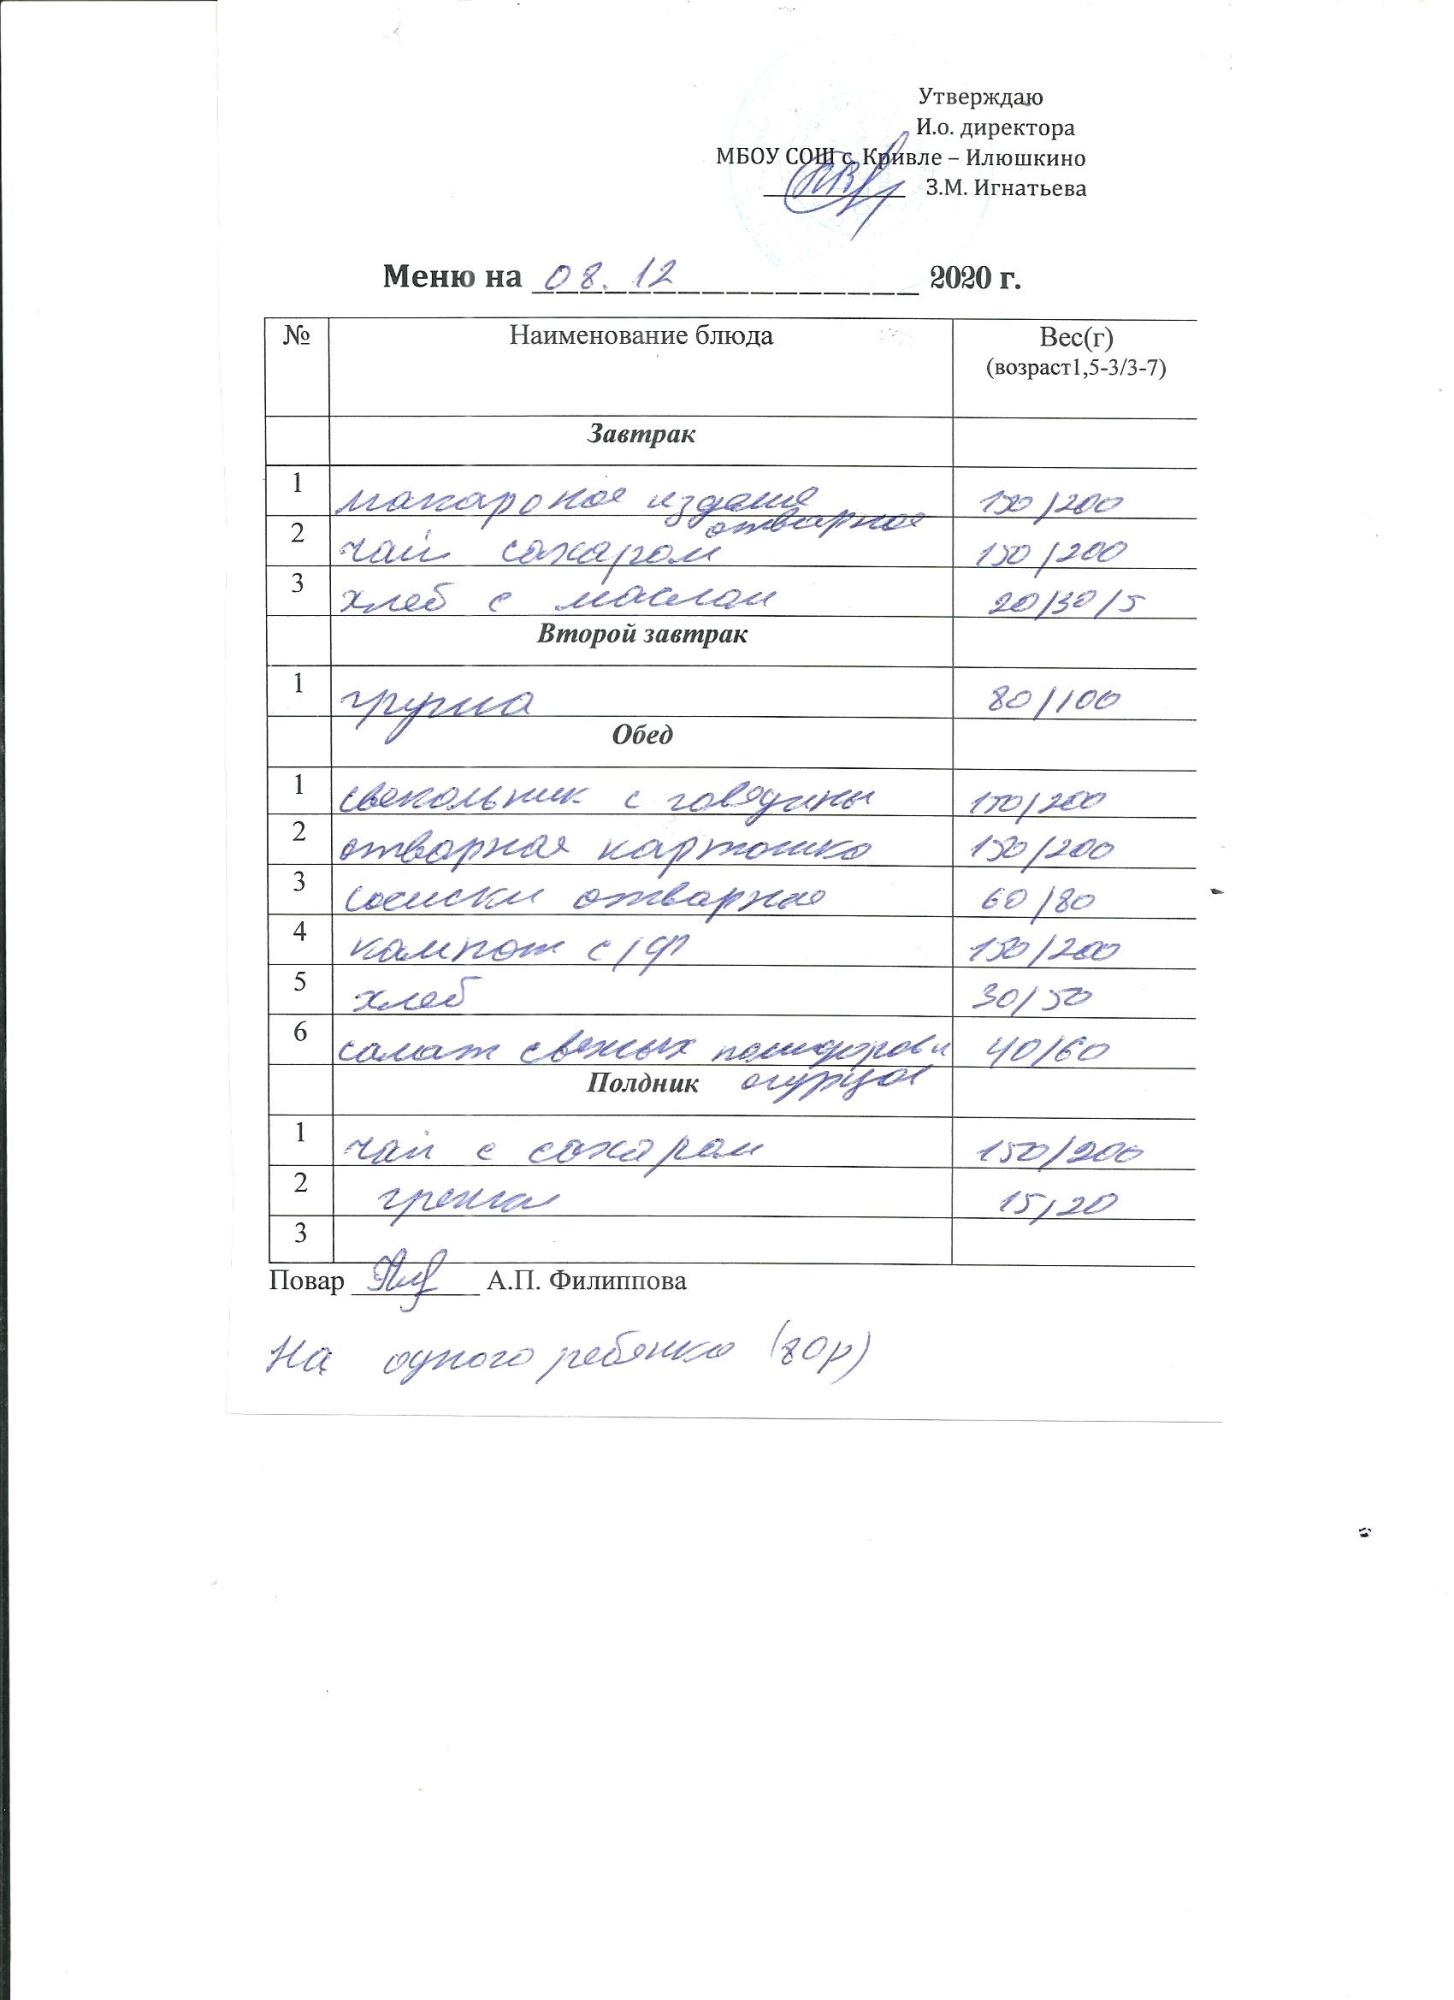 Утверждаю
И.о. директора
МБОУ СОШ с. Кривле – Илюшкино
З.М. Игнатьева
Меню на 08.12 2020 г.
№ Наименование блюда Вес(г)
(возраст1,5-3/3-7)
Завтрак
1 макароное изделие 150/200
отварное
2 чай сахаром 150/200
3 хлеб с маслом 20/30/5
Второй завтрак
1 груша 80/100
Обед
1 свекольник с говядины 150/200
2 отварная картошка 150/200
3 сосиски отварная 60/80
4 кампот с/ф 150/200
5 хлеб 30/50
6 салат свежых помидоров и 40/60
Полдник огурцов
1 чай с сахаром 150/200
2 15/20
3
Повар А.П. Филиппова
На одного ребёнка (80р)